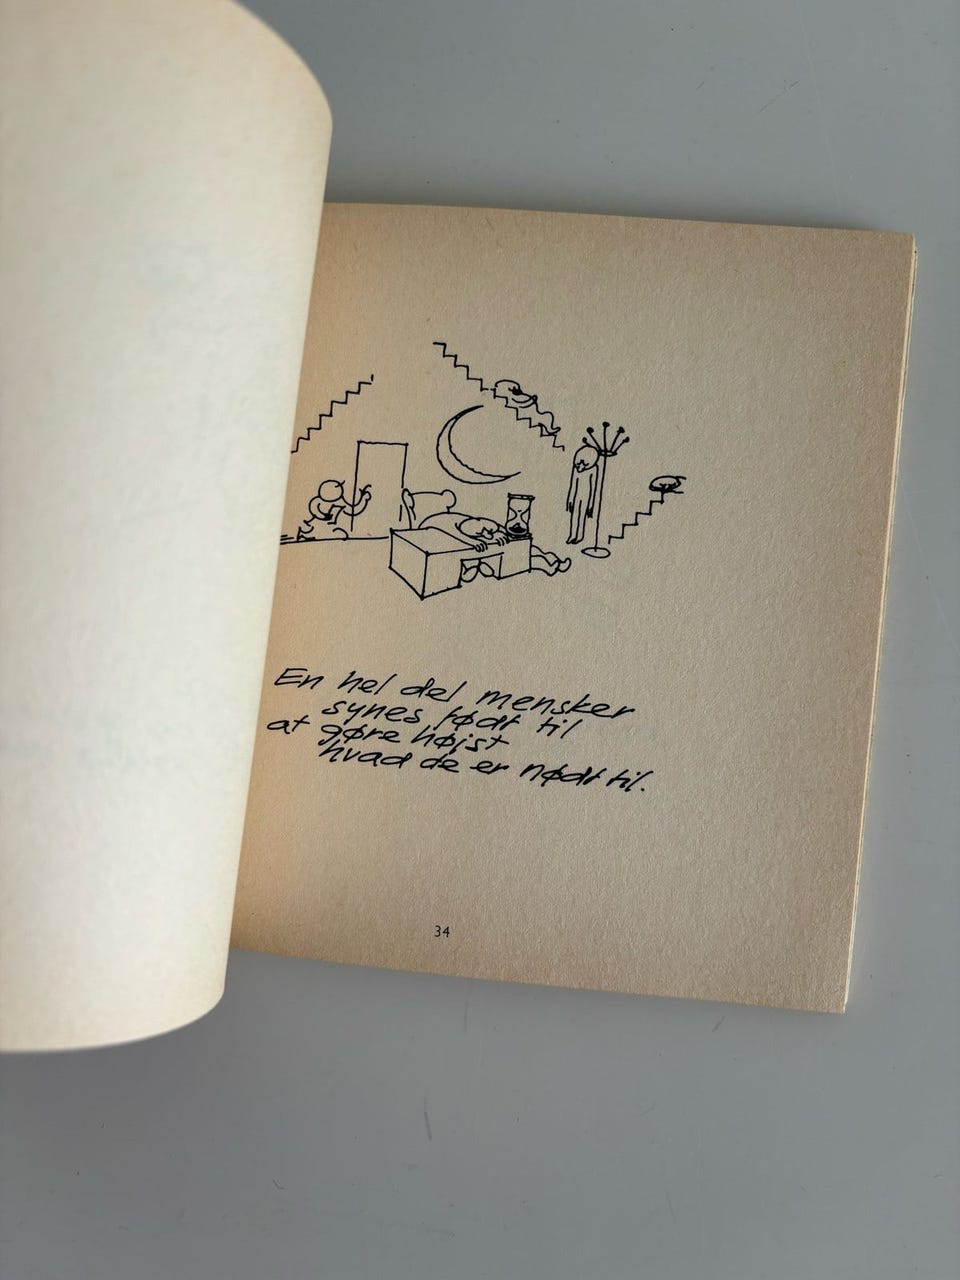 En hel del mensker
synes født til
at gøre højst
hvad de er nødt til.
34